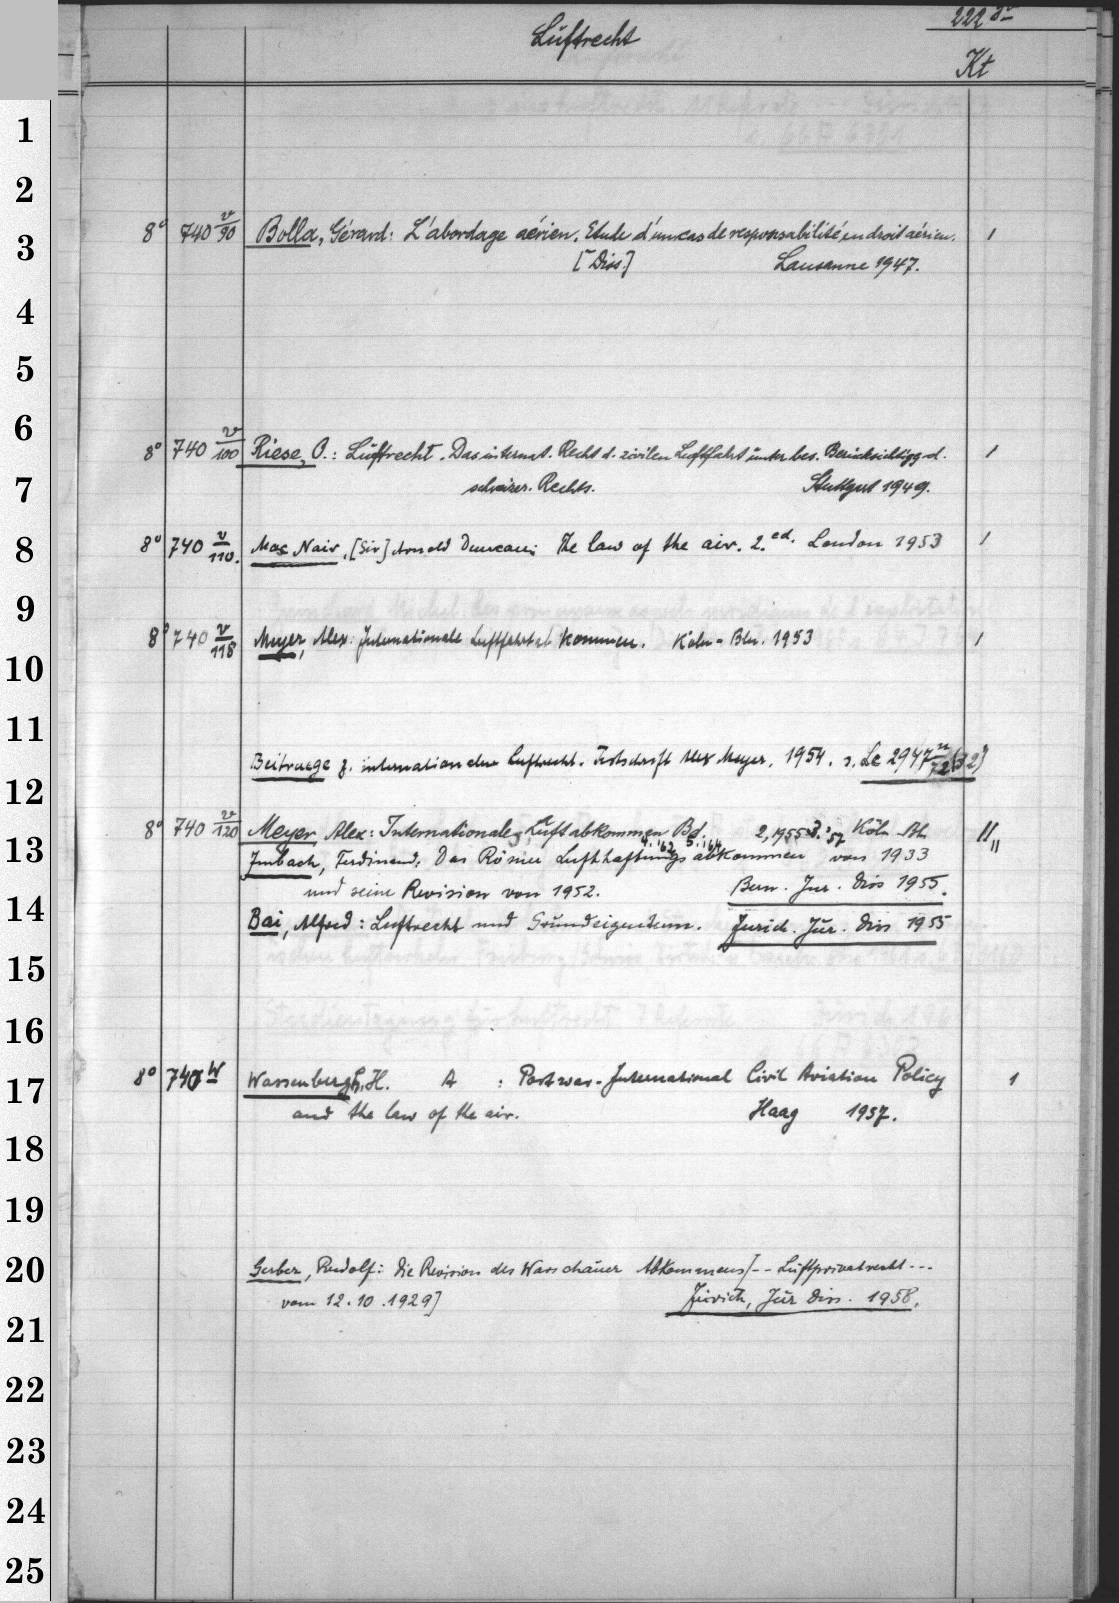 222
Luftrecht
Kt
1
2
3
4
5
6
7
8
9
10
11
12
13
14
15
16
17
18
19
20
21
22
23
24
25
8° 740 v/90 Bolla, Gérard: L'abordage aérien. Etude d'un cas de responsabilité en droit aérien. 1
[Diss.] Lausanne 1947.
8° 740 v/100 Riese, O.: Luftrecht. Das internat. Recht d. zivilen Luftfahrt unter bes. Berücksichtigg d. 1
schweizer. Rechts. Stuttgart 1949.
8° 740 v/110. Mac Nair, [Sir] Arnold Duncan: The law of the air. 2.ed. London 1953 1
8° 740 v/118 Meyer, Alex: Internationale Luftfahrtabkommen. Köln-Bln. 1953 1
Beitraege z. internationalen Luftrecht. Festschrift Alex Meyer. 1954. s. Le 2947
8° 740 v/120 Meyer, Alex: Internationale Luftabkommen Bd. 2, 1955 3.'57 Köln Bln
4.'63 5.'64
Imbach, Ferdinand: Das Römer Lufthaftungsabkommen von 1933
und seine Revision von 1952. Bern. Jur. Diss 1955.
Bai, Alfred: Luftrecht und Grundeigentum. Zürich. Jur. Diss 1955
8° 740 W Wassenbergh, H. A : Post-war-International Civil Aviation Policy 1
and the law of the air. Haag 1957.
Gerber, Rudolf: Die Revision des Warschauer Abkommens [-- Luftprivatrecht ---
vom 12.10.1929] Zürich, Jur Diss. 1958.